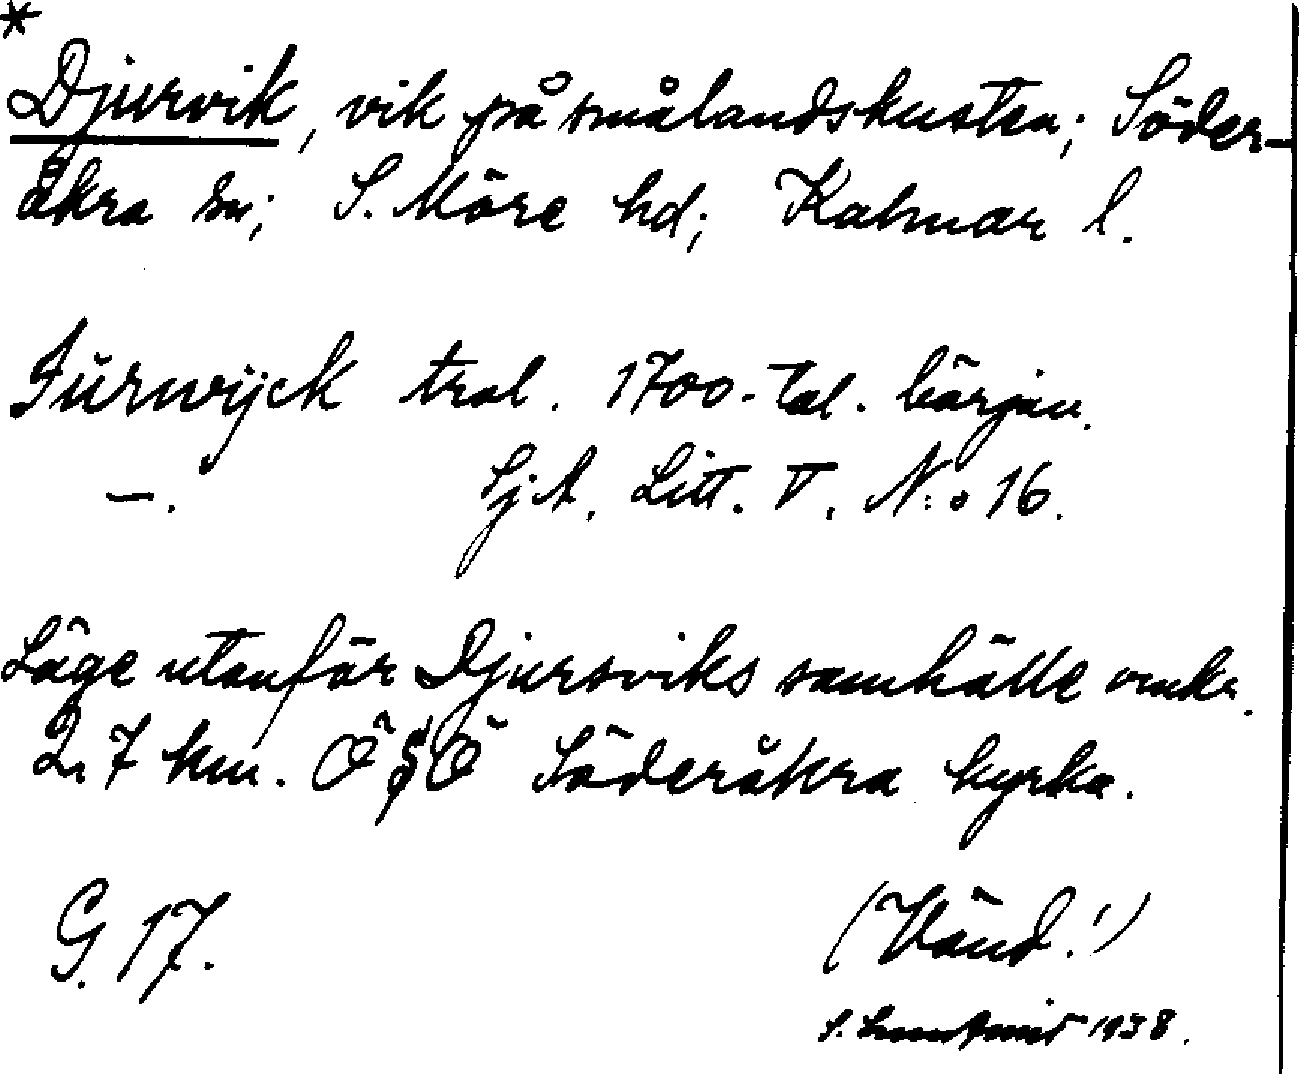 *
Djurvik, vik på smålandskusten; Söder-
åkra sn; S. Möre hd; Kalmar l.
Jürwijck trol. 1700-tal. början.
–. SjA. Litt. V. N:o 16.
Läge utanför Djursviks samhälle omkr.
2,7 km. ÖSÖ Söderåkra kyrka.
G. 17. (Vänd!)
S. 1938.